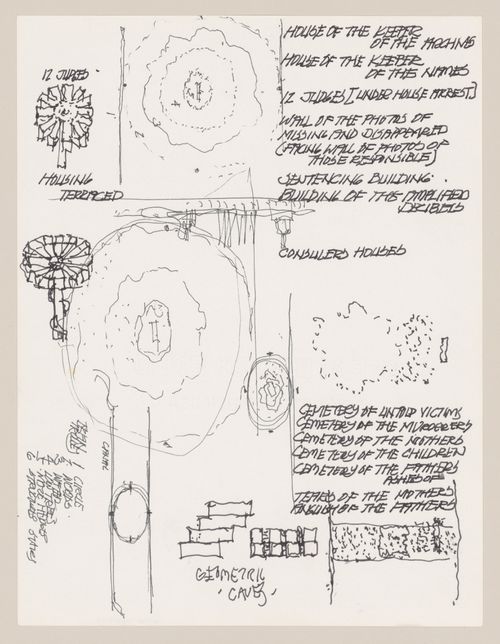 12 JUDGES
HOUSING
TERRACED
HOUSE OF THE KEEPER
OF THE
HOUSE OF THE KEEPER
OF THE NAMES
12 JUDGES [UNDER HOUSE ARREST]
WALL OF THE PHOTOS OF
MISSING AND DISAPPEARED
(FACING WALL OF PHOTOS OF
THOSE RESPONSIBLE)
SENTENCING BUILDING.
BUILDING OF THE AMPLIFIED
DECIBELS
HOUSES
CANAL
CEMETERY OF UNTOLD VICTIMS
CEMETERY OF THE MURDERERS
CEMETERY OF THE MOTHERS
CEMETERY OF THE CHILDREN
CEMETERY OF THE FATHERS
ASHES OF
TEARS OF THE MOTHERS
ANGUISH OF THE FATHERS
GEOMETRIC
CAVES